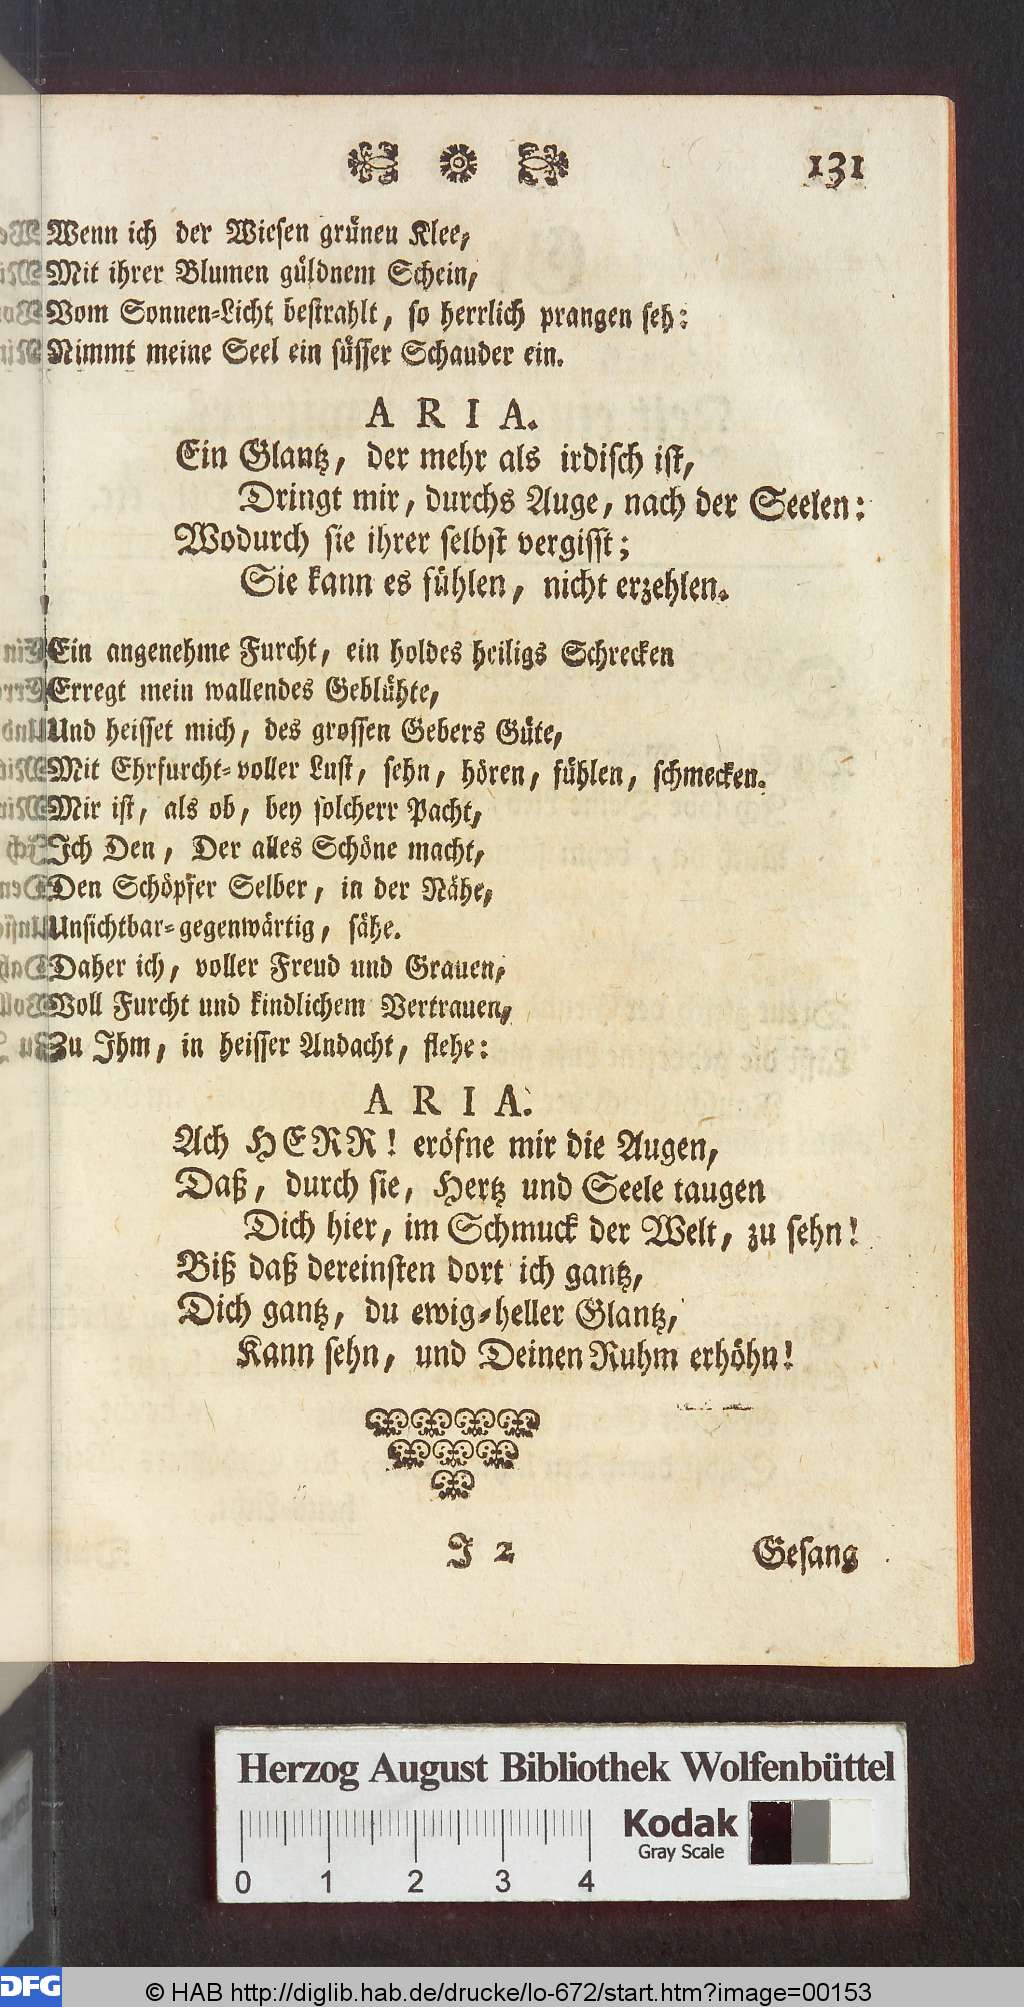 131
Wenn ich der Wiesen grünen Klee,
Mit ihrer Blumen güldnem Schein,
Vom Sonnen-Licht bestrahlt, so herrlich prangen seh:
Nimmt meine Seel ein süsser Schauder ein.
ARIA.
Ein Glantz, der mehr als irdisch ist,
Dringt mir, durchs Auge, nach der Seelen:
Wodurch sie ihrer selbst vergisst;
Sie kann es fühlen, nicht erzehlen.
Ein angenehme Furcht, ein holdes heiligs Schrecken
Erregt mein wallendes Geblühte,
Und heisset mich, des grossen Gebers Güte,
Mit Ehrfurcht-voller Lust, sehn, hören, fühlen, schmecken.
Mir ist, als ob, bey solcherr Pacht,
Ich Den, Der alles Schöne macht,
Den Schöpfer Selber, in der Nähe,
Unsichtbar-gegenwärtig, sähe.
Daher ich, voller Freud und Grauen,
Voll Furcht und kindlichem Vertrauen,
Zu Ihm, in heisser Andacht, flehe:
ARIA.
Ach HERR! eröfne mir die Augen,
Daß, durch sie, Hertz und Seele taugen
Dich hier, im Schmuck der Welt, zu sehn!
Biß daß dereinsten dort ich gantz,
Dich gantz, du ewig-heller Glantz,
Kann sehn, und Deinen Ruhm erhöhn!
J 2
Gesang
Herzog August Bibliothek Wolfenbüttel
Kodak
Gray Scale
0 1 2 3 4
DFG
© HAB http://diglib.hab.de/drucke/lo-672/start.htm?image=00153